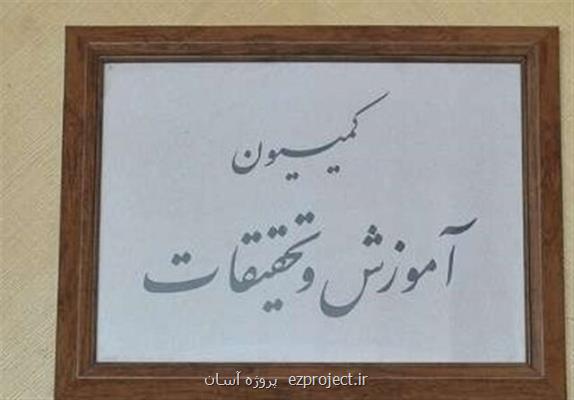 کمیسیون
آموزش و تحقیقات
پروژه آسان ezproject.ir